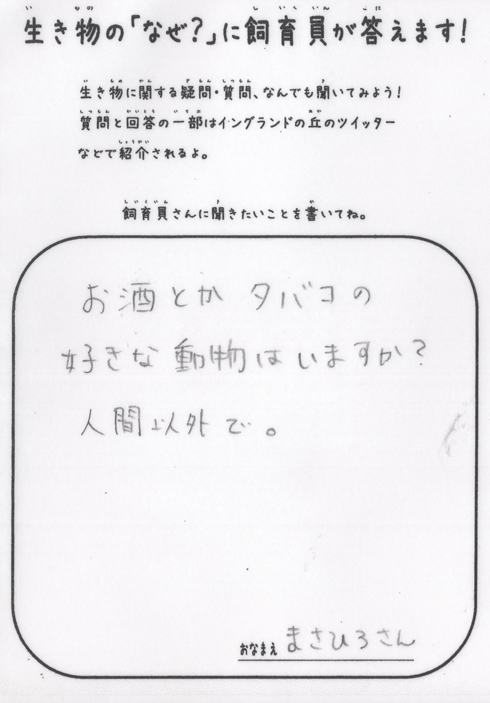 生き物の「なぜ?」に飼育員が答えます!
生き物に関する疑問・質問、なんでも聞いてみよう!
質問と回答の一部はイングランドの丘のツイッター
などで紹介されるよ。
飼育員さんに聞きたいことを書いてね。
お酒とか タバコの
好きな 動物はいますか?
人間以外で。
おなまえ まさひろさん